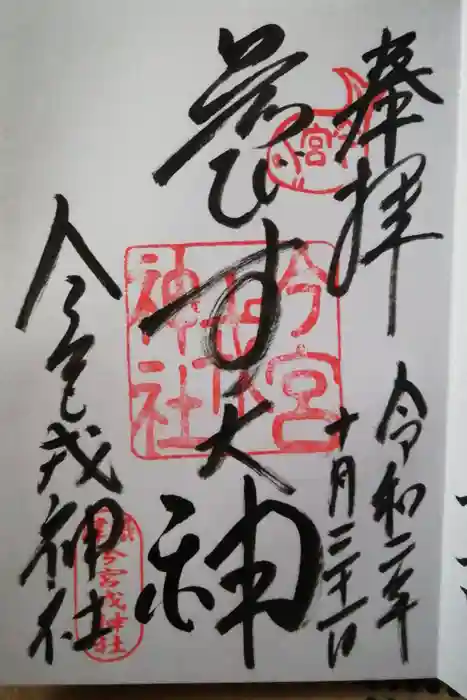 奉拝
令和二年
十月三十一日
ゑびす大神
今宮戎神社
宮
今宮
戎
神社
今宮戎神社